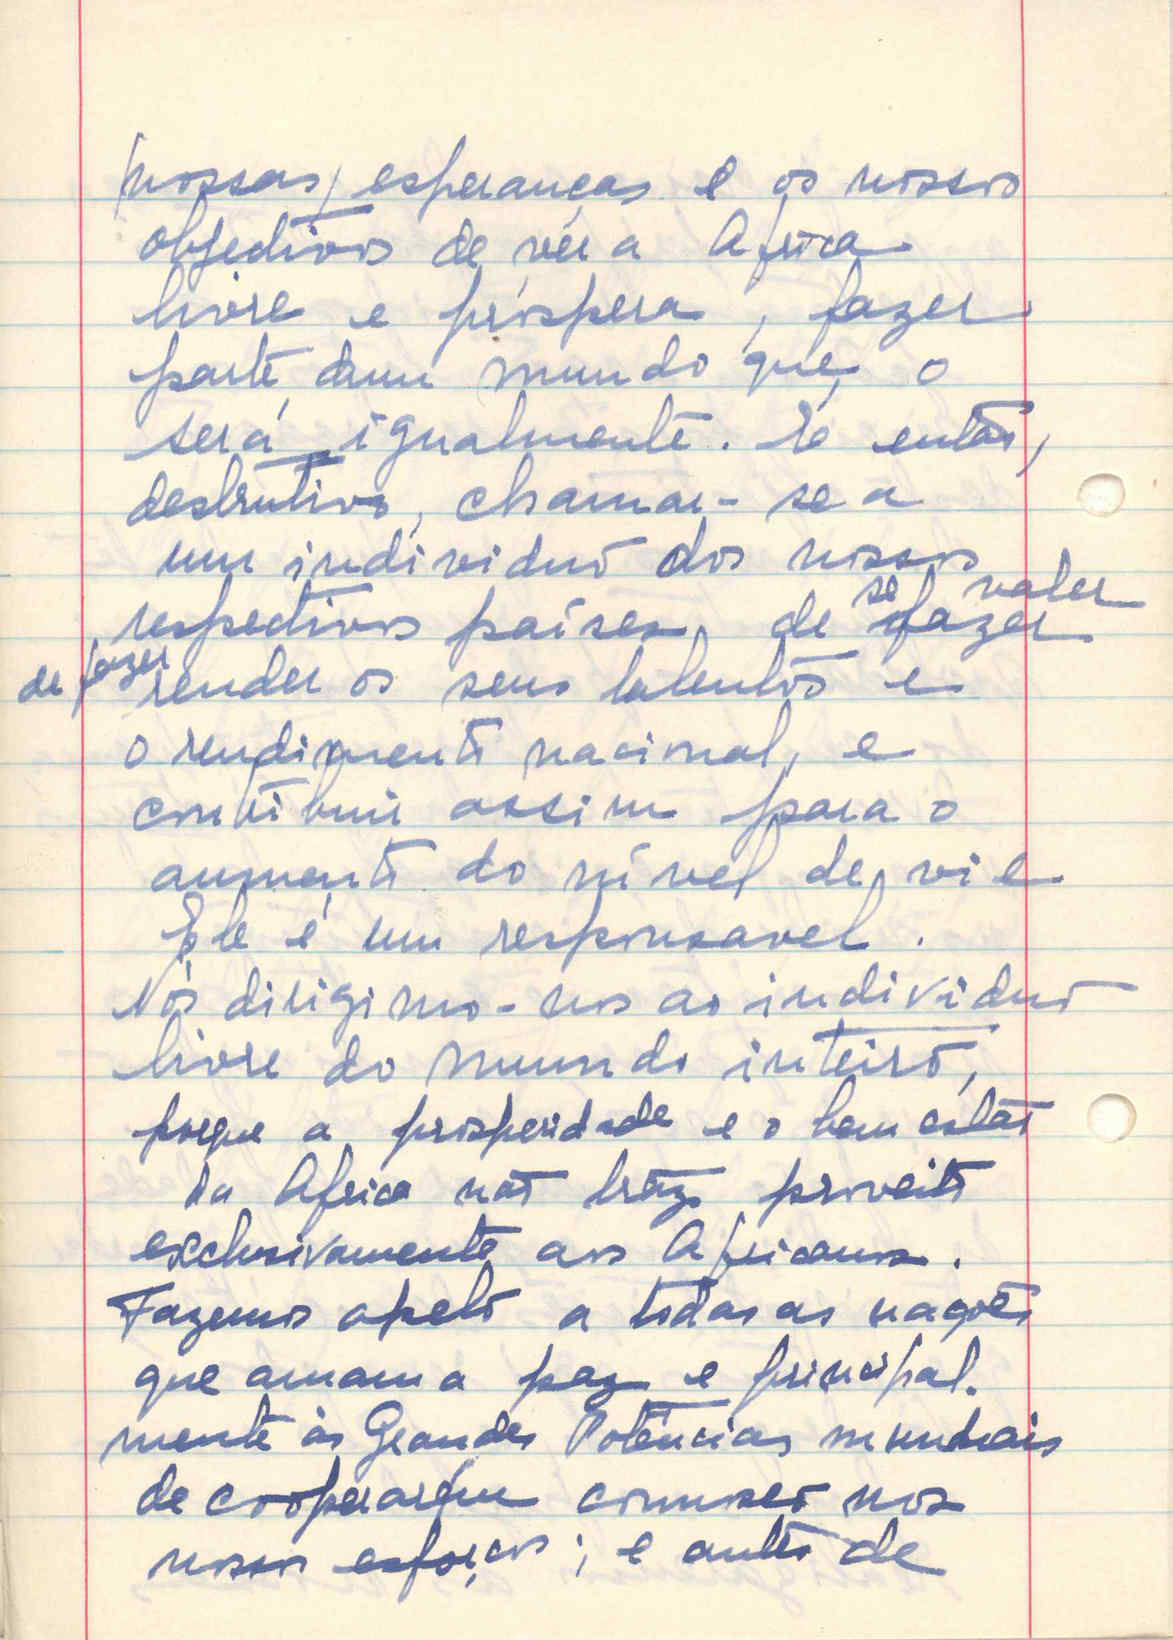 /nossas/ esperanças e os nossos
objectivos de vêr a Africa
livre e próspera, fazer
parte dum mundo que o
será igualmente. É então,
destrutivo, chamar-se a
um individuo dos nossos
se valer
respectivos países, de fazer
de fazer
render os seus talentos e
o rendimento nacional, e
contribuir assim para o
aumento do nível de vie
Ele é um responsavel.
Nós dirigimo-nos ao individuo
livre do mundo inteiro,
porque a prosperidade e o bem estar
da Africa não traz proveito
exclusivamente aos Africanos.
Fazemos apelo a todas as nações
que amam a paz e principal-
mente às Grandes Potências mundiais
de cooperarem connosco nos
nossos esforços; e antes de